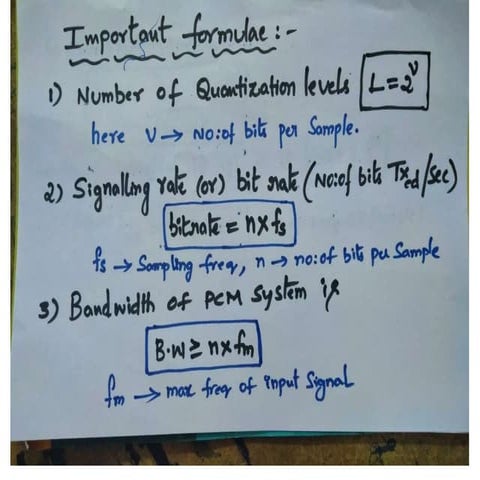 Important formulae :-
1) Number of Quantization levels L=2^v
here v → No: of bits per Sample.
2) Signalling rate (or) bit rate (No: of bits Txed/Sec)
bitrate = n×fs
fs → Sampling freq, n → no: of bits per Sample
3) Bandwidth of PCM System is
B.W ≥ n×fm
fm → max freq of input Signal